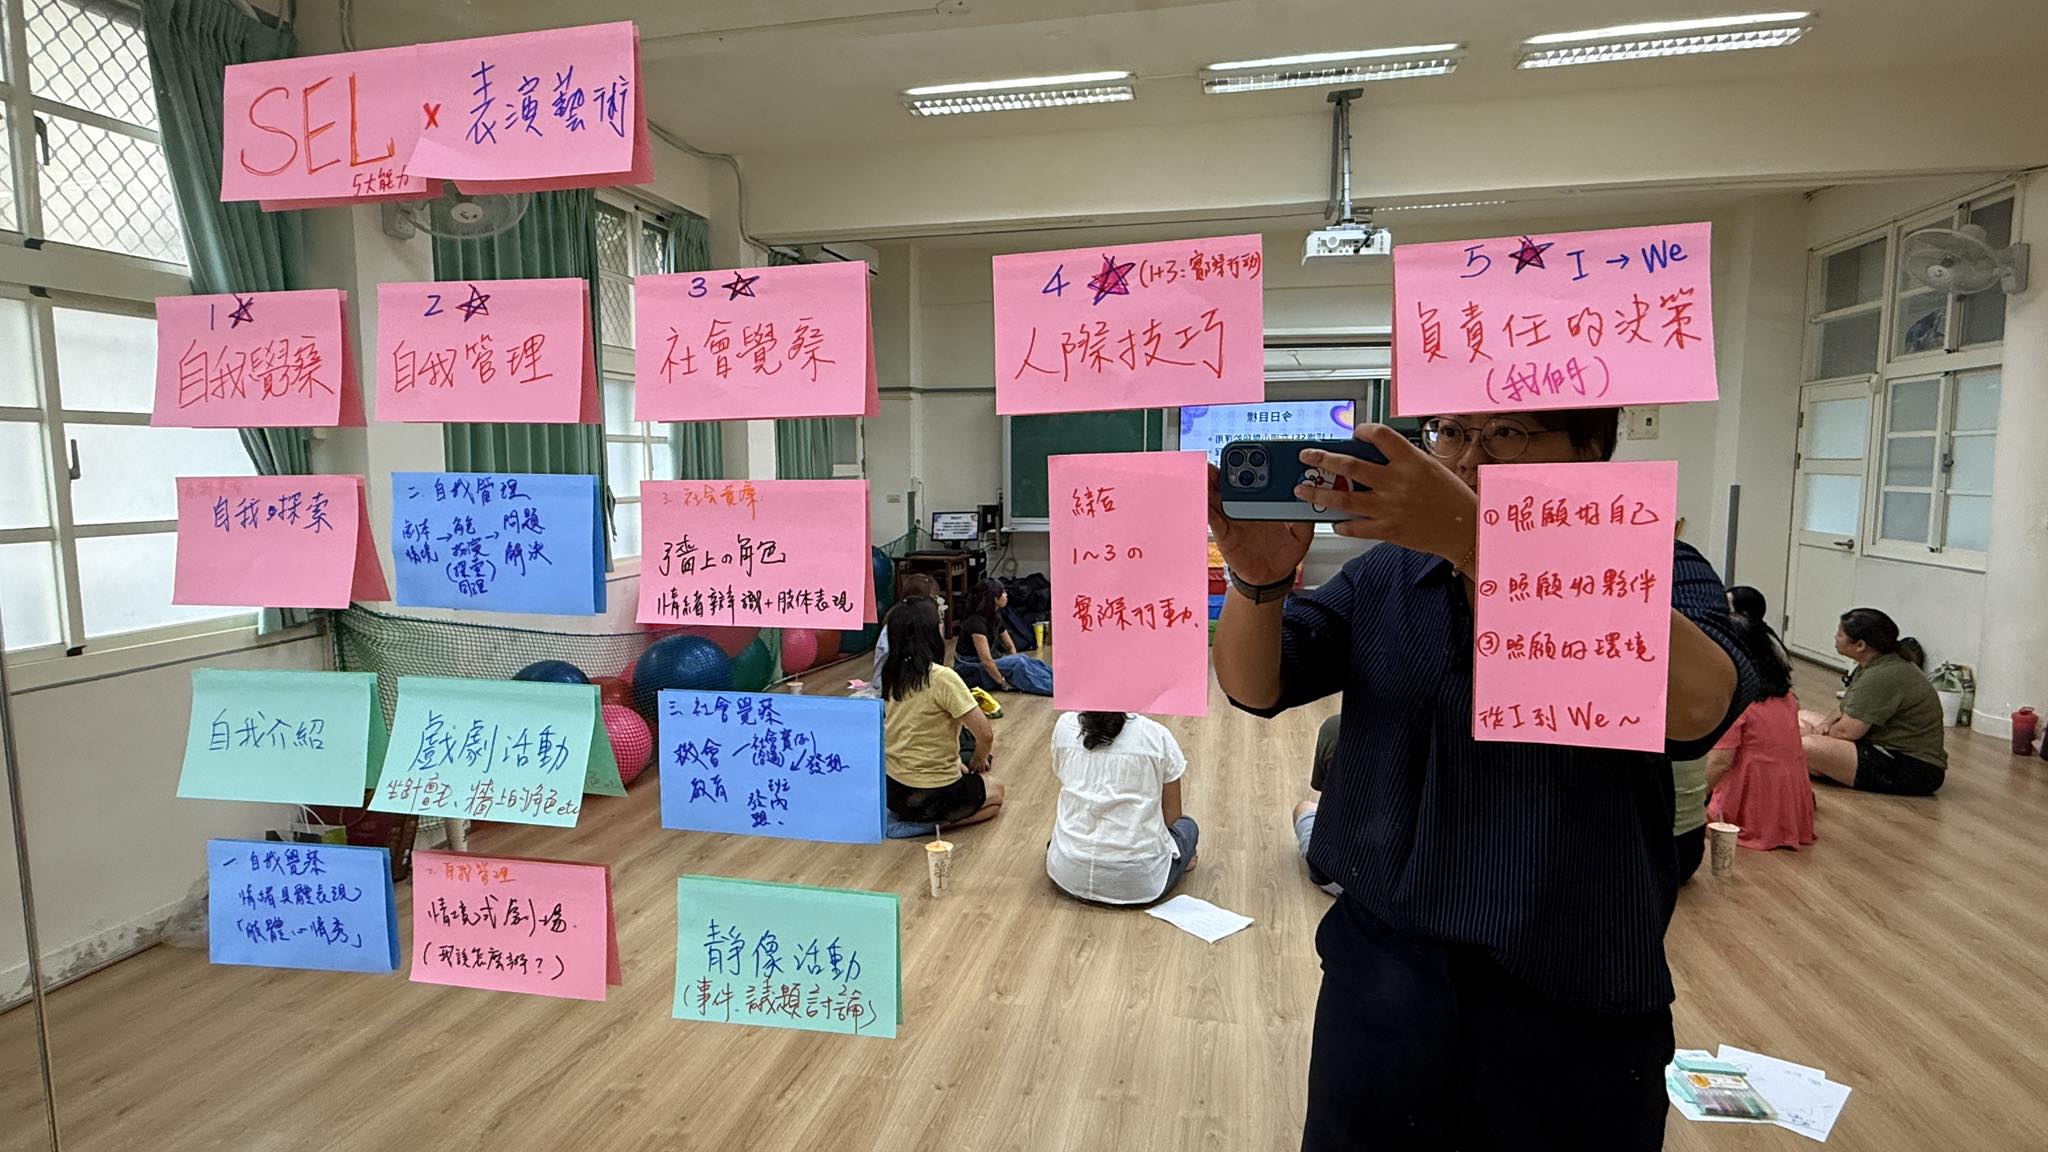 SEL × 表演藝術
5大能力
1 ☆
自我覺察
2 ☆
自我管理
3 ☆
社會覺察
4 ☆ (1+3:實際行動)
人際技巧
5 ☆ I → We
負責任的決策
(我們)
自我探索
自我介紹
一 自我覺察
情緒具體表現
「肢體心情秀」
二.自我管理
劇本 → 角色 → 問題
情境 扮演 解決
同理
戲劇活動
坐針氈、牆上的角色etc
2.自我管理
情境式劇場.
(我該怎麼辦?)
3.社會覺察.
牆上の角色
情緒辨識+肢体表現
三.社會覺察
機會
教育
社會實例
發想
班內
靜像活動
(事件、議題討論)
綜合
1~3の
實際行動.
① 照顧好自己
② 照顧好夥伴
③ 照顧好環境
從I到We~
今日目標